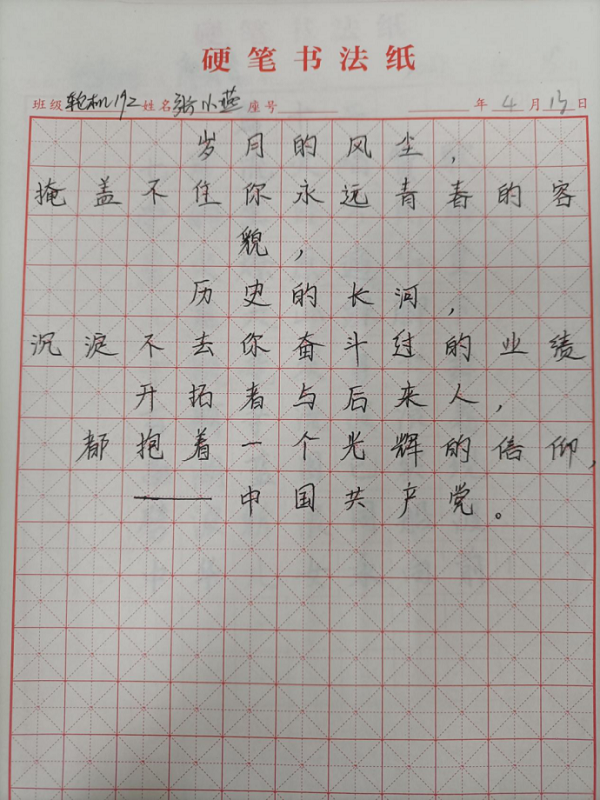 硬笔书法纸
班级 轮机192 姓名 张小燕 座号 年 4 月 13 日
岁月的风尘，
掩盖不住你永远青春的容
貌，
历史的长河，
沉淀不去你奋斗过的业绩
开拓者与后来人，
都抱着一个光辉的信仰，
——中国共产党。